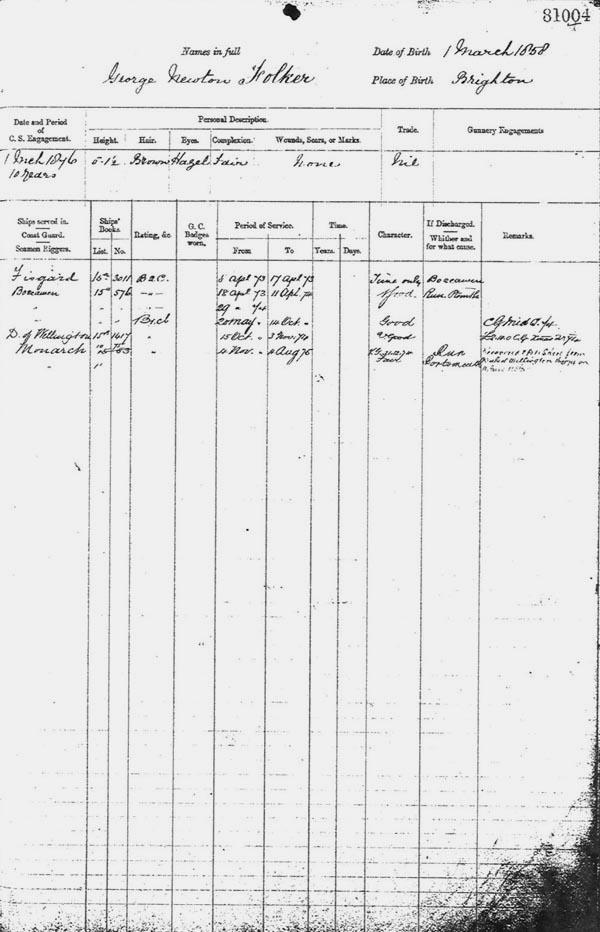 81004
Names in full
Date of Birth 1 March 1858
George Newton
Place of Birth Brighton
Date and Period of C. S. Engagement.
Personal Description.
Height. Hair. Eyes. Complexion. Wounds, Scars, or Marks.
Trade.
Gunnery Engagements
1 Mch 1876 5-1½ Brown Hazel Fair None Nil
10 years
Ships served in.
Coast Guard.
Seamen Riggers.
Ships' Books.
List. No.
Rating, &c.
G. C. Badges worn.
Period of Service.
From To
Time.
Years. Days.
Character.
If Discharged.
Whither and for what cause.
Remarks.
Fisgard 15a 3011 B2C. 5 Apl 73 17 Apl 73 Time only Boscawen
Boscawen 15a 576 -"- 18 Apl 73 11 Apl 74 Good Run
" " " 29 " 74
B1cl 20 May " 14 Oct " Good
D. of Wellington 15a 1417 " 15 Oct " 3 Nov 74 V Good
Monarch " 4 Nov " 4 Aug 76 Fair Run Portsmouth